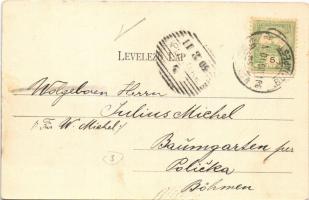 LEVELEZŐ LAP
Wolgeboren Herrn
Julius Michel
p. Fr. W. Michel
Baumgarten per
Polička
Böhmen
5